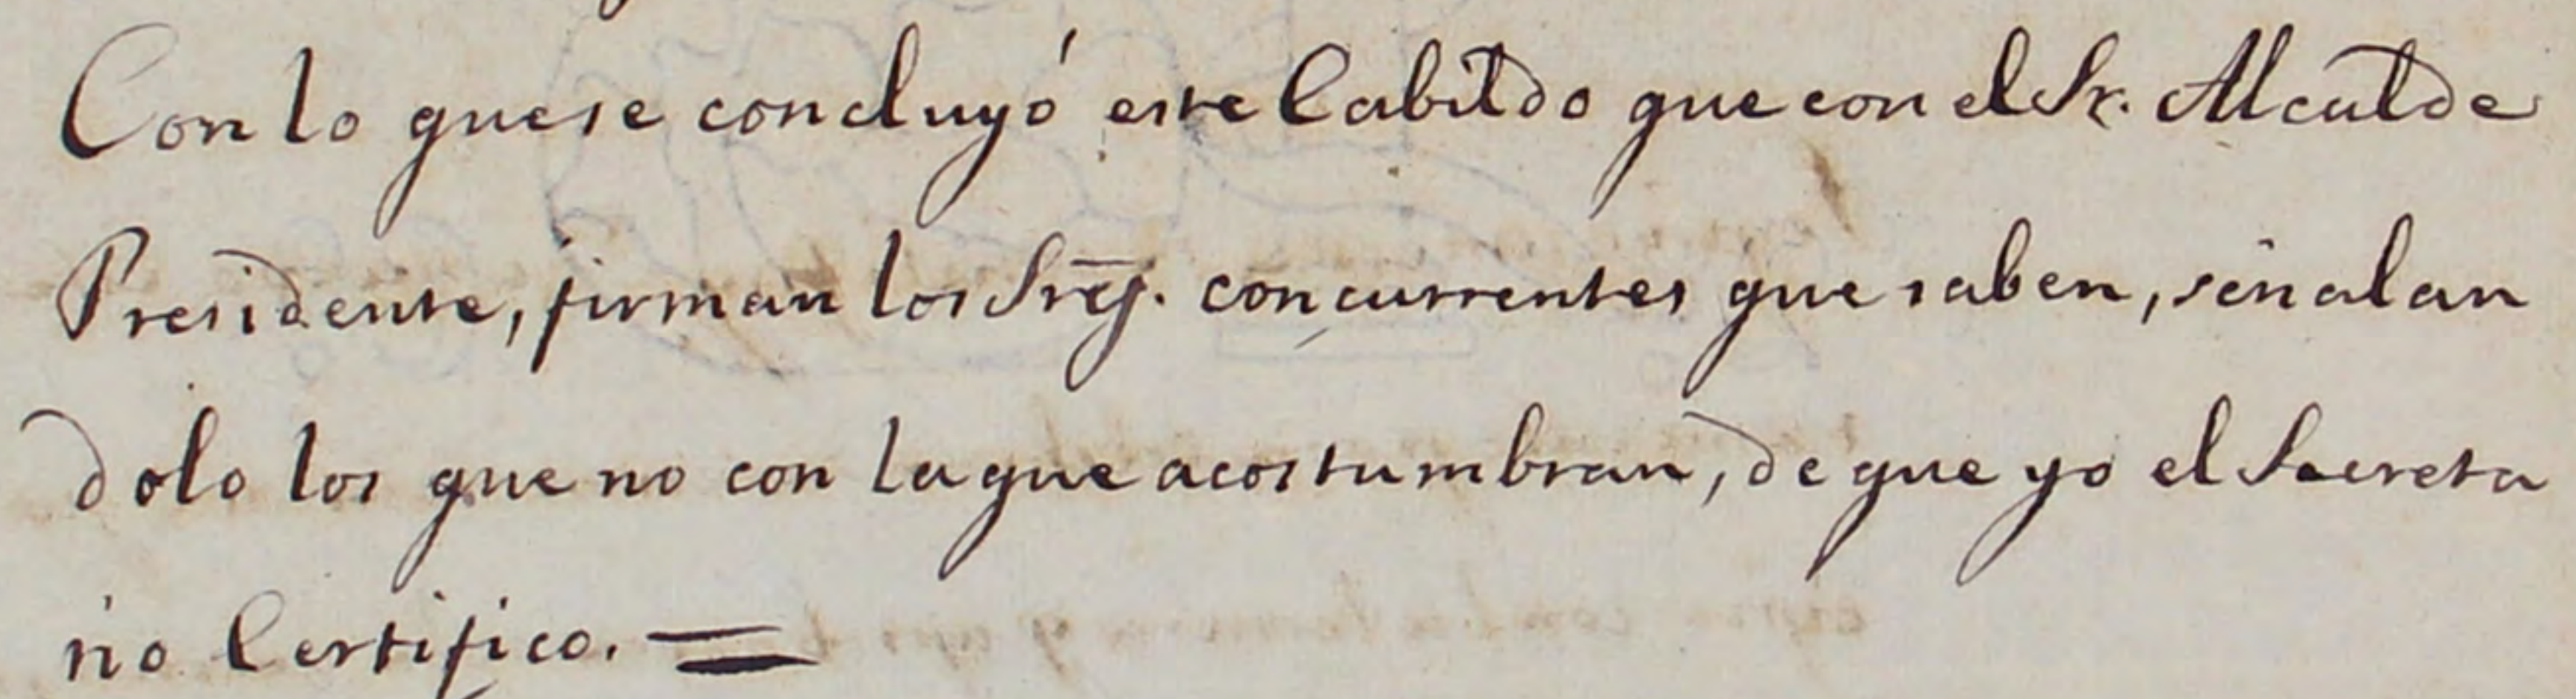 Con lo que se concluyó este Cabildo que con el Sr. Alcalde
Presidente, firman los Sres. concurrentes que saben, señalan
dolo los que no con la que acostumbran, de que yo el Secreta
rio Certifico. =